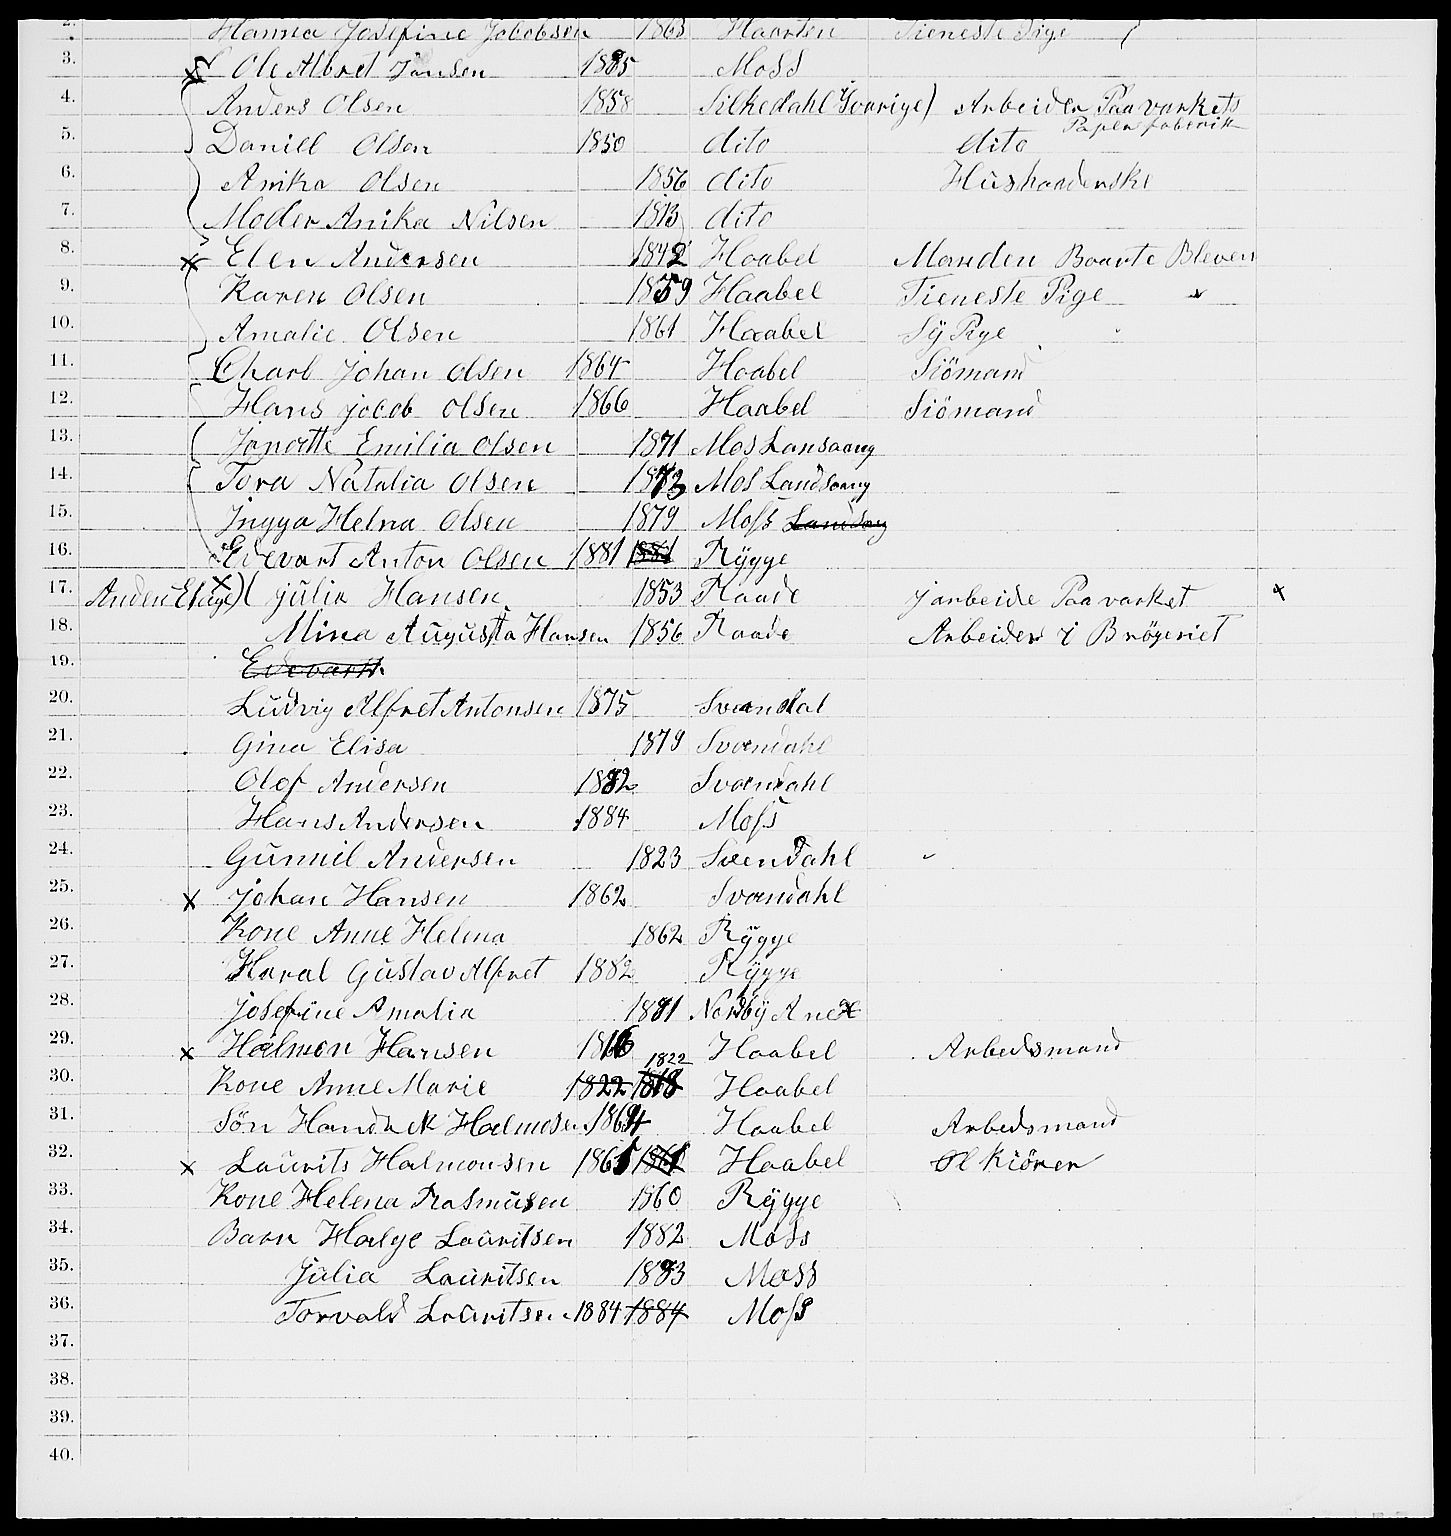 2. Hanna Josefine Jacobsen 1863 Haarten Tieneste Pige
3. Ole Albret Jansen 1885 Moss
4. Anders Olsen 1858 Silkedahl Svarige) Arbeider Paa varkets
Paper fabrik
5. Daniel Olsen 1850 dito dito
6. Anika Olsen 1856 dito Hüshaaderske
7. Moder Anika Nilsen 1813 dito
8. Elen Andersen 1842 Haabel Manden Boarte Bleven
9. Karen Olsen 1859 Haabel Tieneste Pige
10. Amalie Olsen 1861 Haabel Sÿ Pige
11. Charl Johan Olsen 1864 Haabel Siömand
12. Hans jocob Olsen 1866 Haabel Siömand
13. Emilia Olsen 1871 Mos Lansaang
14. Tora Natalia Olsen 1873 Mos Landsaang
15. Jngga Helna Olsen 1879 Moss
16. Edevart Anton Olsen 1881 1881 Rÿgge
17. Anden Etage) julia Hansen 1853 Raade j arbeide Paa varket
18. Mina Augusta Hansen 1856 Raade Arbeider i Brögeriet
19. Edevart
20. Ludvig Alfret Antonsen 1875 Svandal
21. Gina Elisa 1879 Svandahl
22. Olof Andersen 1882 Svandahl
23. Hans Andersen 1884 Moss
24. Gunnil Andersen 1823 Svendahl
25. Johan Hansen 1862 Svandahl
26. Kone Anne Helena 1862 Rÿgge
27. Haral Gustav Alfret 1882 Rÿgge
28. Josefine Amalia 1881 Nordbÿ Anex
29. Halmon Hansen 1816 Haabel Arbedsmand
1822
30. Kone Anne Marie 1822 1818 Haabel
31. Sön Halmosen 1864 Haabel Arbedsmand
32. Laurits Halmonsen 1865 1861 Haabel Öl Kiörer
33. Kone Helena Rasmusen 1860 Rÿgge
34. Barn Halge Lauritsen 1882 Moss
35. Julia Lauritsen 1883 Moss
36. Torvald Lauritsen 1884 1884 Moss
37.
38.
39.
40.